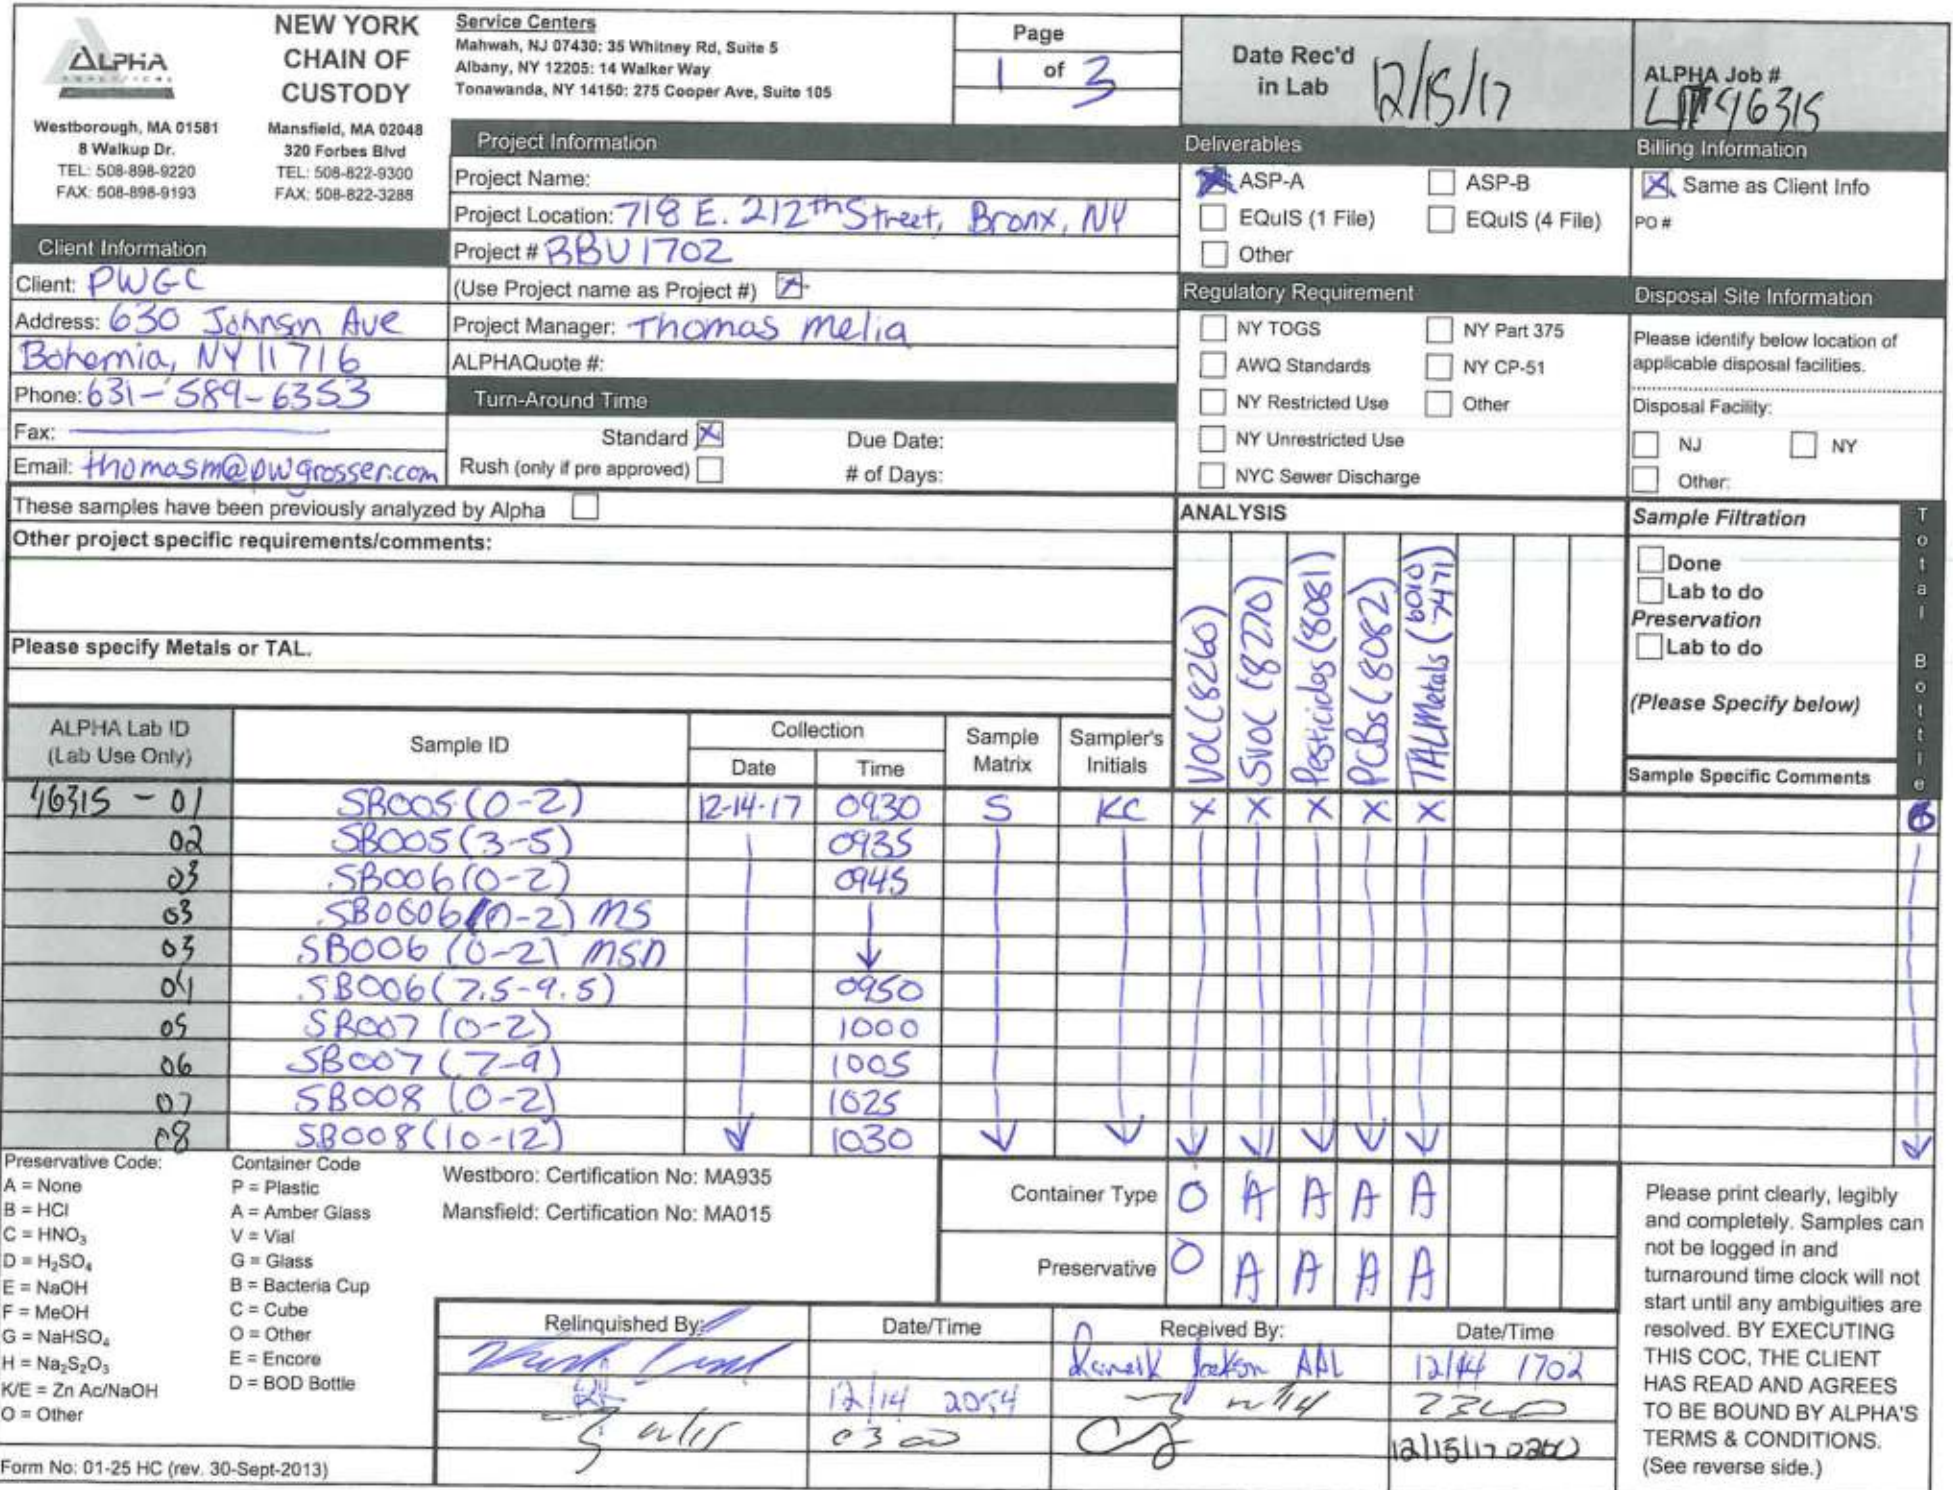 ALPHA
ANALYTICAL
Westborough, MA 01581
8 Walkup Dr.
TEL: 508-898-9220
FAX: 508-898-9193
NEW YORK
CHAIN OF
CUSTODY
Mansfield, MA 02048
320 Forbes Blvd
TEL: 508-822-9300
FAX: 508-822-3288
Service Centers
Mahwah, NJ 07430: 35 Whitney Rd, Suite 5
Albany, NY 12205: 14 Walker Way
Tonawanda, NY 14150: 275 Cooper Ave, Suite 105
Page
1 of 3
Date Rec'd
in Lab
12/15/17
ALPHA Job #
L1746315
Client Information
Client: PWGC
Address: 630 Johnson Ave
Bohemia, NY 11716
Phone: 631-589-6353
Fax:
Email: thomasm@pwgrosser.com
Project Information
Project Name:
Project Location: 718 E. 212th Street, Bronx, NY
Project # BBU1702
(Use Project name as Project #) X
Project Manager: Thomas Melia
ALPHAQuote #:
Turn-Around Time
Standard X Due Date:
Rush (only if pre approved) # of Days:
Deliverables
X ASP-A ASP-B
EQuIS (1 File) EQuIS (4 File)
Other
Regulatory Requirement
NY TOGS NY Part 375
AWQ Standards NY CP-51
NY Restricted Use Other
NY Unrestricted Use
NYC Sewer Discharge
Billing Information
X Same as Client Info
PO #
Disposal Site Information
Please identify below location of
applicable disposal facilities.
Disposal Facility:
NJ NY
Other:
These samples have been previously analyzed by Alpha
Other project specific requirements/comments:
Please specify Metals or TAL.
ANALYSIS
VOC (8260)
SVOC (8270)
Pesticides (8081)
PCBs (8082)
TAL Metals (6010 7471)
Sample Filtration
Done
Lab to do
Preservation
Lab to do
(Please Specify below)
Total Bottle
ALPHA Lab ID
(Lab Use Only)
Sample ID
Collection
Date Time
Sample
Matrix
Sampler's
Initials
Sample Specific Comments
46315 - 01 SB005 (0-2) 12-14-17 0930 S KC X X X X X
02 SB005 (3-5) 0935
03 SB006 (0-2) 0945
03 SB006 (0-2) MS
03 SB006 (0-2) MSD
04 SB006 (7.5-9.5) 0950
05 SB007 (0-2) 1000
06 SB007 (7-9) 1005
07 SB008 (0-2) 1025
08 SB008 (10-12) 1030
Preservative Code:
A = None
B = HCl
C = HNO₃
D = H₂SO₄
E = NaOH
F = MeOH
G = NaHSO₄
H = Na₂S₂O₃
K/E = Zn Ac/NaOH
O = Other
Container Code
P = Plastic
A = Amber Glass
V = Vial
G = Glass
B = Bacteria Cup
C = Cube
O = Other
E = Encore
D = BOD Bottle
Westboro: Certification No: MA935
Mansfield: Certification No: MA015
Container Type O A A A A
Preservative O A A A A
Relinquished By: Date/Time Received By: Date/Time
Jackson AAL 12/14 1702
12/14 2054
0300 12/15/17
Please print clearly, legibly
and completely. Samples can
not be logged in and
turnaround time clock will not
start until any ambiguities are
resolved. BY EXECUTING
THIS COC, THE CLIENT
HAS READ AND AGREES
TO BE BOUND BY ALPHA'S
TERMS & CONDITIONS.
(See reverse side.)
Form No: 01-25 HC (rev. 30-Sept-2013)